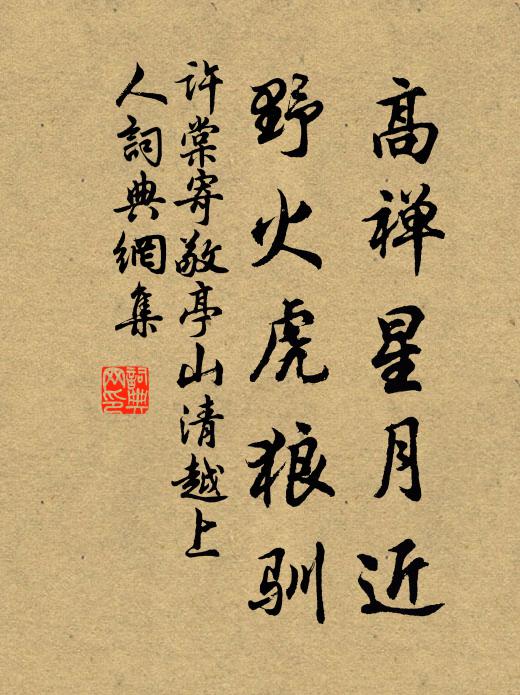 高禅星月近
野火虎狼驯
许棠寄敬亭山清越上
人詞典網集
詞典
网印